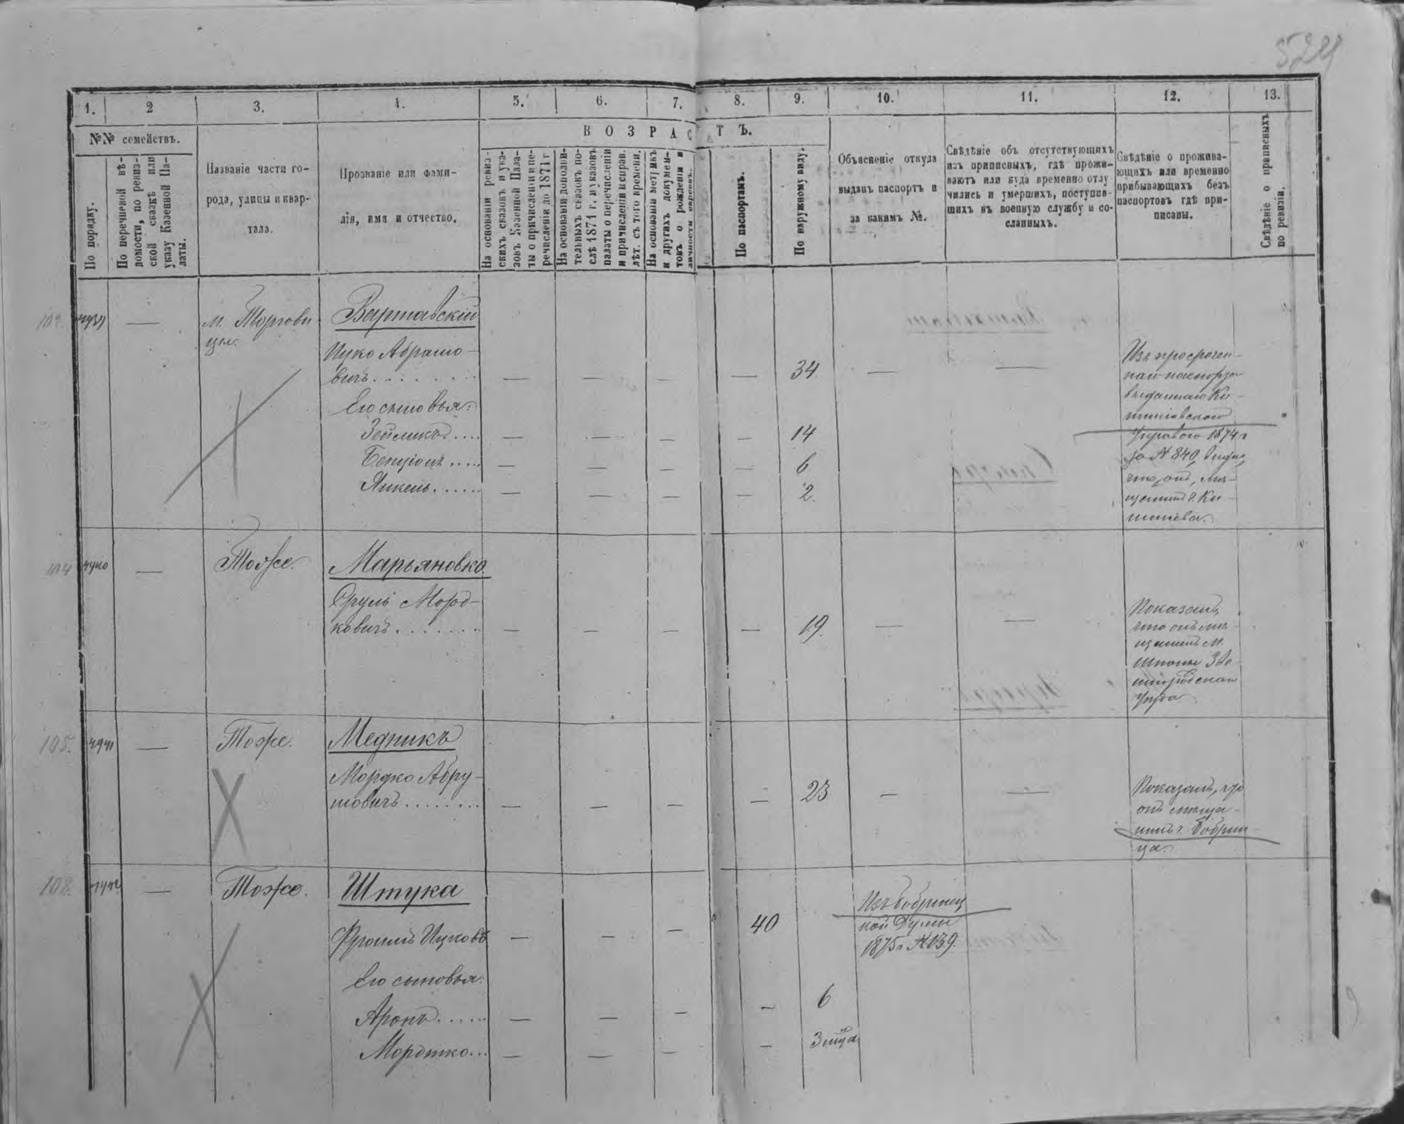 524
1.
2
3.
4.
5.
6.
7.
8.
9.
10.
11.
12.
13.
№№ семействъ.
ВОЗРАСТЪ.
По порядку.
По перечневой вѣ-
домости, по ревиз-
ской сказкѣ или
указу Казенной Па-
латы.
Названіе части го-
рода, улицы и квар-
тала.
Прозваніе или фами-
лія, имя и отчество.
На основаніи ревиз-
скихъ сказокъ и ука-
зовъ Казенной Пала-
ты о причисленіи и пе-
речисленіи до 1871 г.
На основаніи дополни-
тельныхъ сказокъ по-
слѣ 1871 г. и указовъ
палаты о перечисленіи
и причисленіи и справ.
лѣт. съ того времени.
На основаніи метрикъ
и другихъ докумен-
товъ о рожденіи и
личности евреевъ.
По паспортамъ.
По наружному виду.
Объясненіе откуда
выданъ паспортъ и
за какимъ №.
Свѣдѣніе объ отсутствующихъ
изъ приписныхъ, гдѣ прожи-
ваютъ или куда временно отлу
чились и умершихъ, поступив-
шихъ въ военную службу и со-
сланныхъ.
Свѣдѣніе о прожива-
ющихъ или временно
прибывающихъ безъ
паспортовъ гдѣ при-
писаны.
Свѣдѣніе о приписныхъ
по ревизіи.
м. Торгови
цы.
Вартавскій
Ицко Абрамо-
вичъ
34
Его сыновья:
Зейликъ
14
Бенціонъ
6
Янкель
2.
Изъ просрочен-
выданнаго Ки-
шиневской
Управою 1874 г
за № 840, видно
что онъ, мѣ-
щанинъ г. Ки-
шинева.
Тоже.
Марьяновка
Сруль Морд-
ковичъ
19.
Показалъ,
что онъ мѣ-
щанинъ м.
Шполы Зве-
нигородскаго
Уѣзда.
105.
Тоже.
Медникъ
Мордко Абру-
мовичъ
23
Показалъ, что
онъ мѣща-
нинъ г. Бобрин-
ца.
108.
Тоже.
Штука
Фроимъ Ицковъ
40
Изъ Бобринец
кой Думы
1875 г № 139.
Его сыновья:
Аронъ
6
Мордтко
3 мѣ-ца